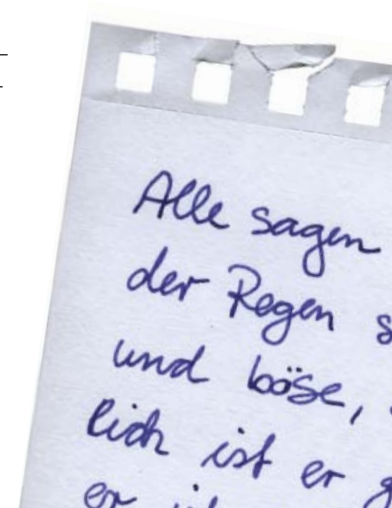 Alle sagen
der Regen s
und böse,
lich ist er g
er